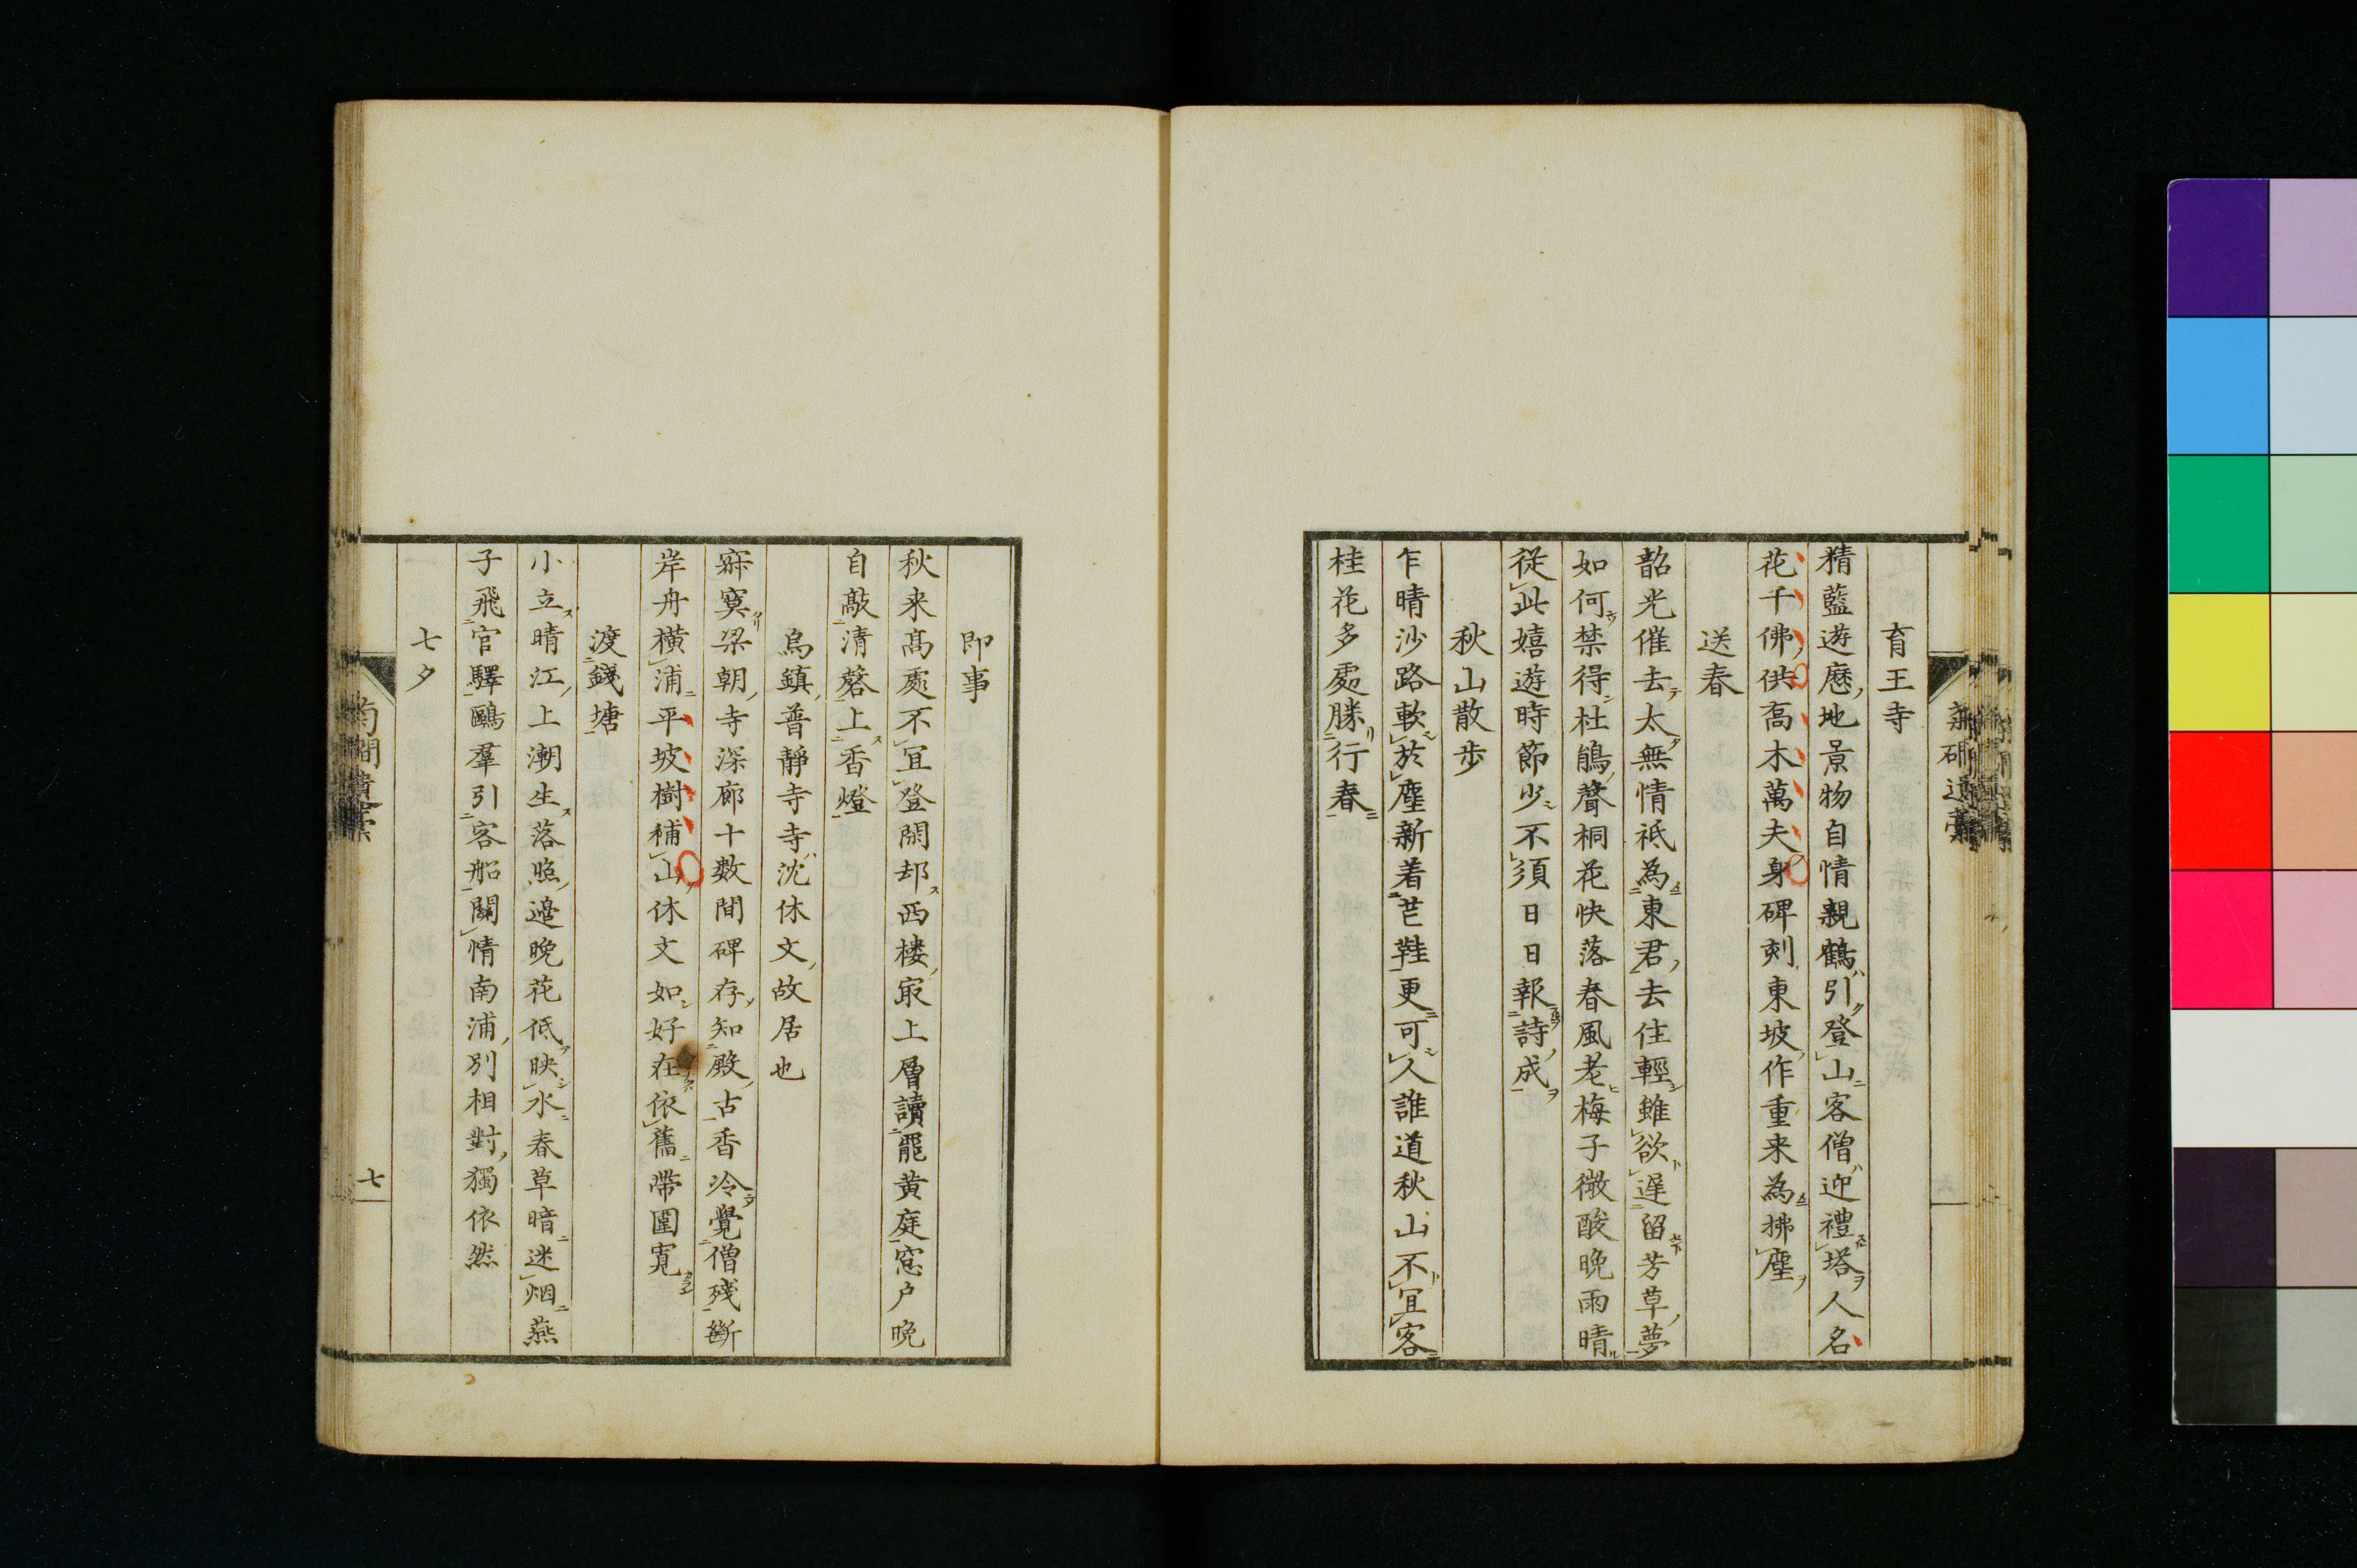 育王寺
精藍遊歷地景物自情親鶴引登山客僧迎禮塔人名
花千佛供高木萬夫身碑刻東坡作重来為拂塵
送春
韶光催去太無情祗為東君去住輕雖欲遲留芳草夢
如何禁得杜鵑聲桐花快落春風老梅子微酸晩雨晴
從此嬉遊時節少不須日日報詩成
秋山散歩
乍晴沙路軟於塵新着芒鞋更可人誰道秋山不宜客
桂花多處勝行春
即事
秋来髙處不宜登閑却西楼㝡上層讀罷黄庭窓户晩
自敲清磬上香燈
烏鎮普靜寺寺沈休文故居也
寂寞梁朝寺深廊十数間碑存知殿古香冷覺僧残斷
岸舟横浦平坡樹補山休文如好在依舊帶圍寛
渡錢塘
小立晴江上潮生落照邉晩花低映水春草暗迷烟燕
子飛官驛鷗羣引客船關情南浦別相對獨依然
七夕
七